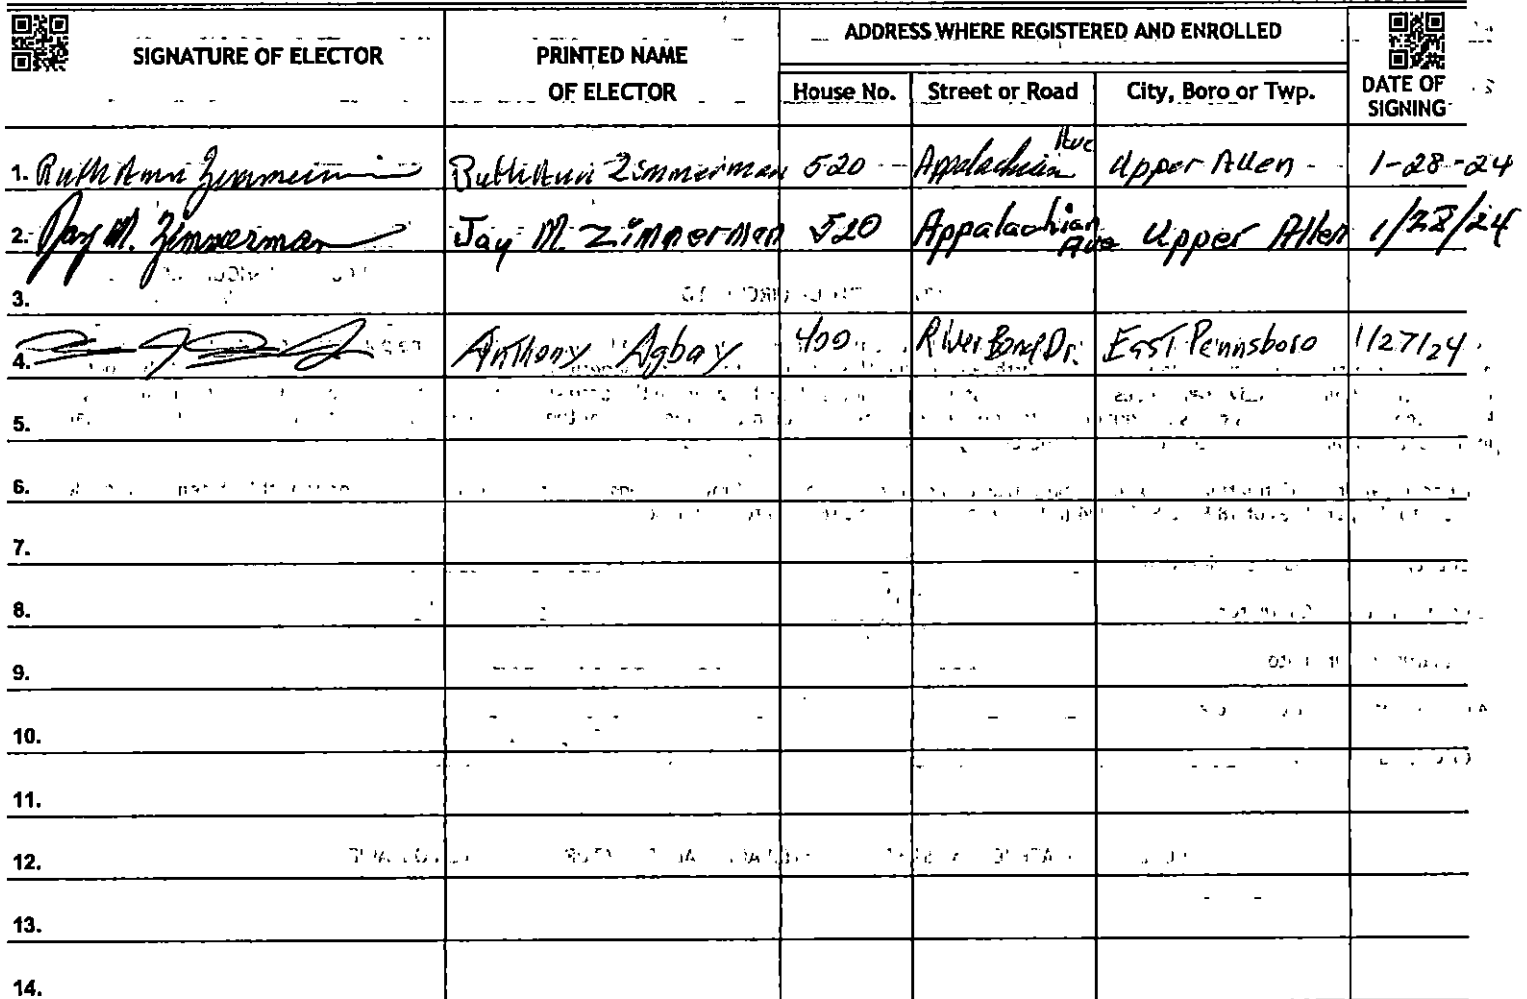 SIGNATURE OF ELECTOR
PRINTED NAME
OF ELECTOR
ADDRESS WHERE REGISTERED AND ENROLLED
House No. Street or Road City, Boro or Twp.
DATE OF
SIGNING
1. Ruth Ann Zimmerman Ruth Ann Zimmerman 520 Appalachian Ave Upper Allen 1-28-24
2. Jay M. Zimmerman Jay M. Zimmerman 520 Appalachian Ave Upper Allen 1/28/24
3.
4. Anthony Agbay 400 River Bend Dr. East Pennsboro 1/27/24
5.
6.
7.
8.
9.
10.
11.
12.
13.
14.